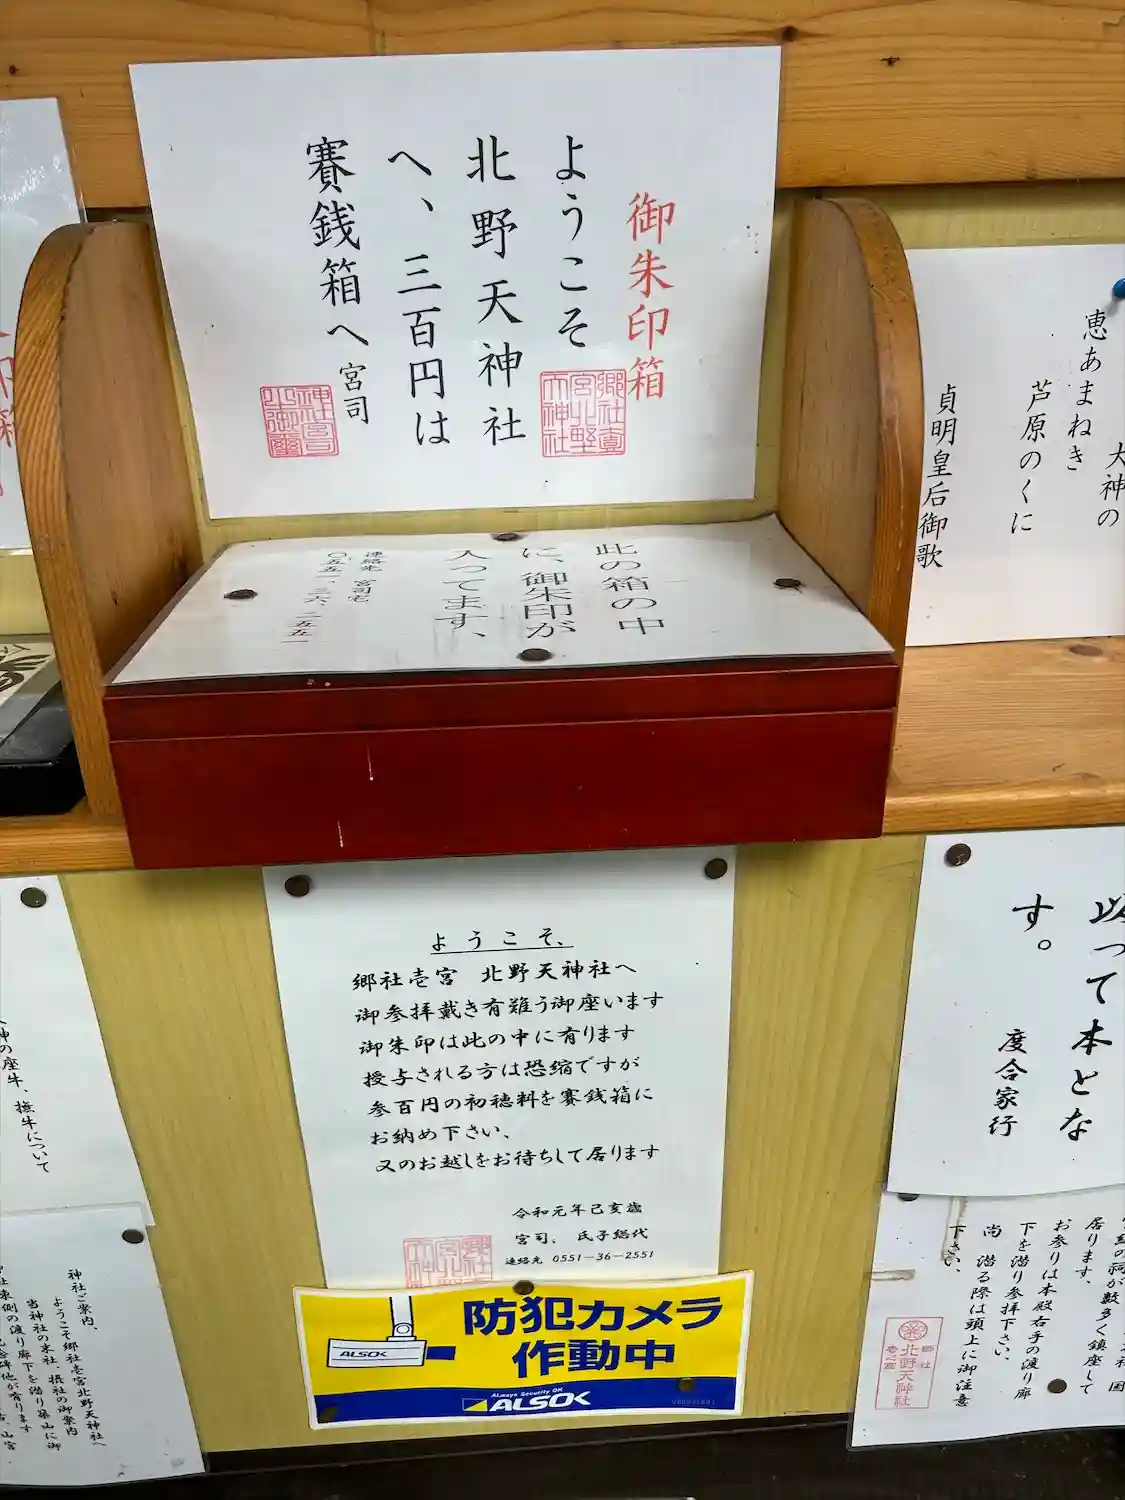 御朱印箱
ようこそ
北野天神社
へ、三百円は
賽銭箱へ 宮司
此の箱の中
に、御朱印が
入ってます、
連絡先 宮司宅
〇五五一、三六、二五五一
大神の
恵あまねき
芦原のくに
貞明皇后御歌
ようこそ、
郷社壱宮 北野天神社へ
御参拝戴き有難う御座います
御朱印は此の中に有ります
授与される方は恐縮ですが
参百円の初穂料を賽銭箱に
お納め下さい、
又のお越しをお待ちして居ります
令和元年己亥歳
宮司、氏子総代
連絡先 0551-36-2551
防犯カメラ
作動中
ALSOK
Always Security OK
ALSOK
って本とな
す。
度合家行
が数多く鎮座して
居ります、
お参りは本殿右手の渡り廊
下を潜り参拝下さい、
尚 潜る際は頭上に御注意
下さい、
郷社
北野天神社
の座牛、撫牛について
神社ご案内、
ようこそ郷社壱宮北野天神社へ
当神社の末社、摂社の御案内
東側の渡り廊下を潜り築山に御
他が有ります